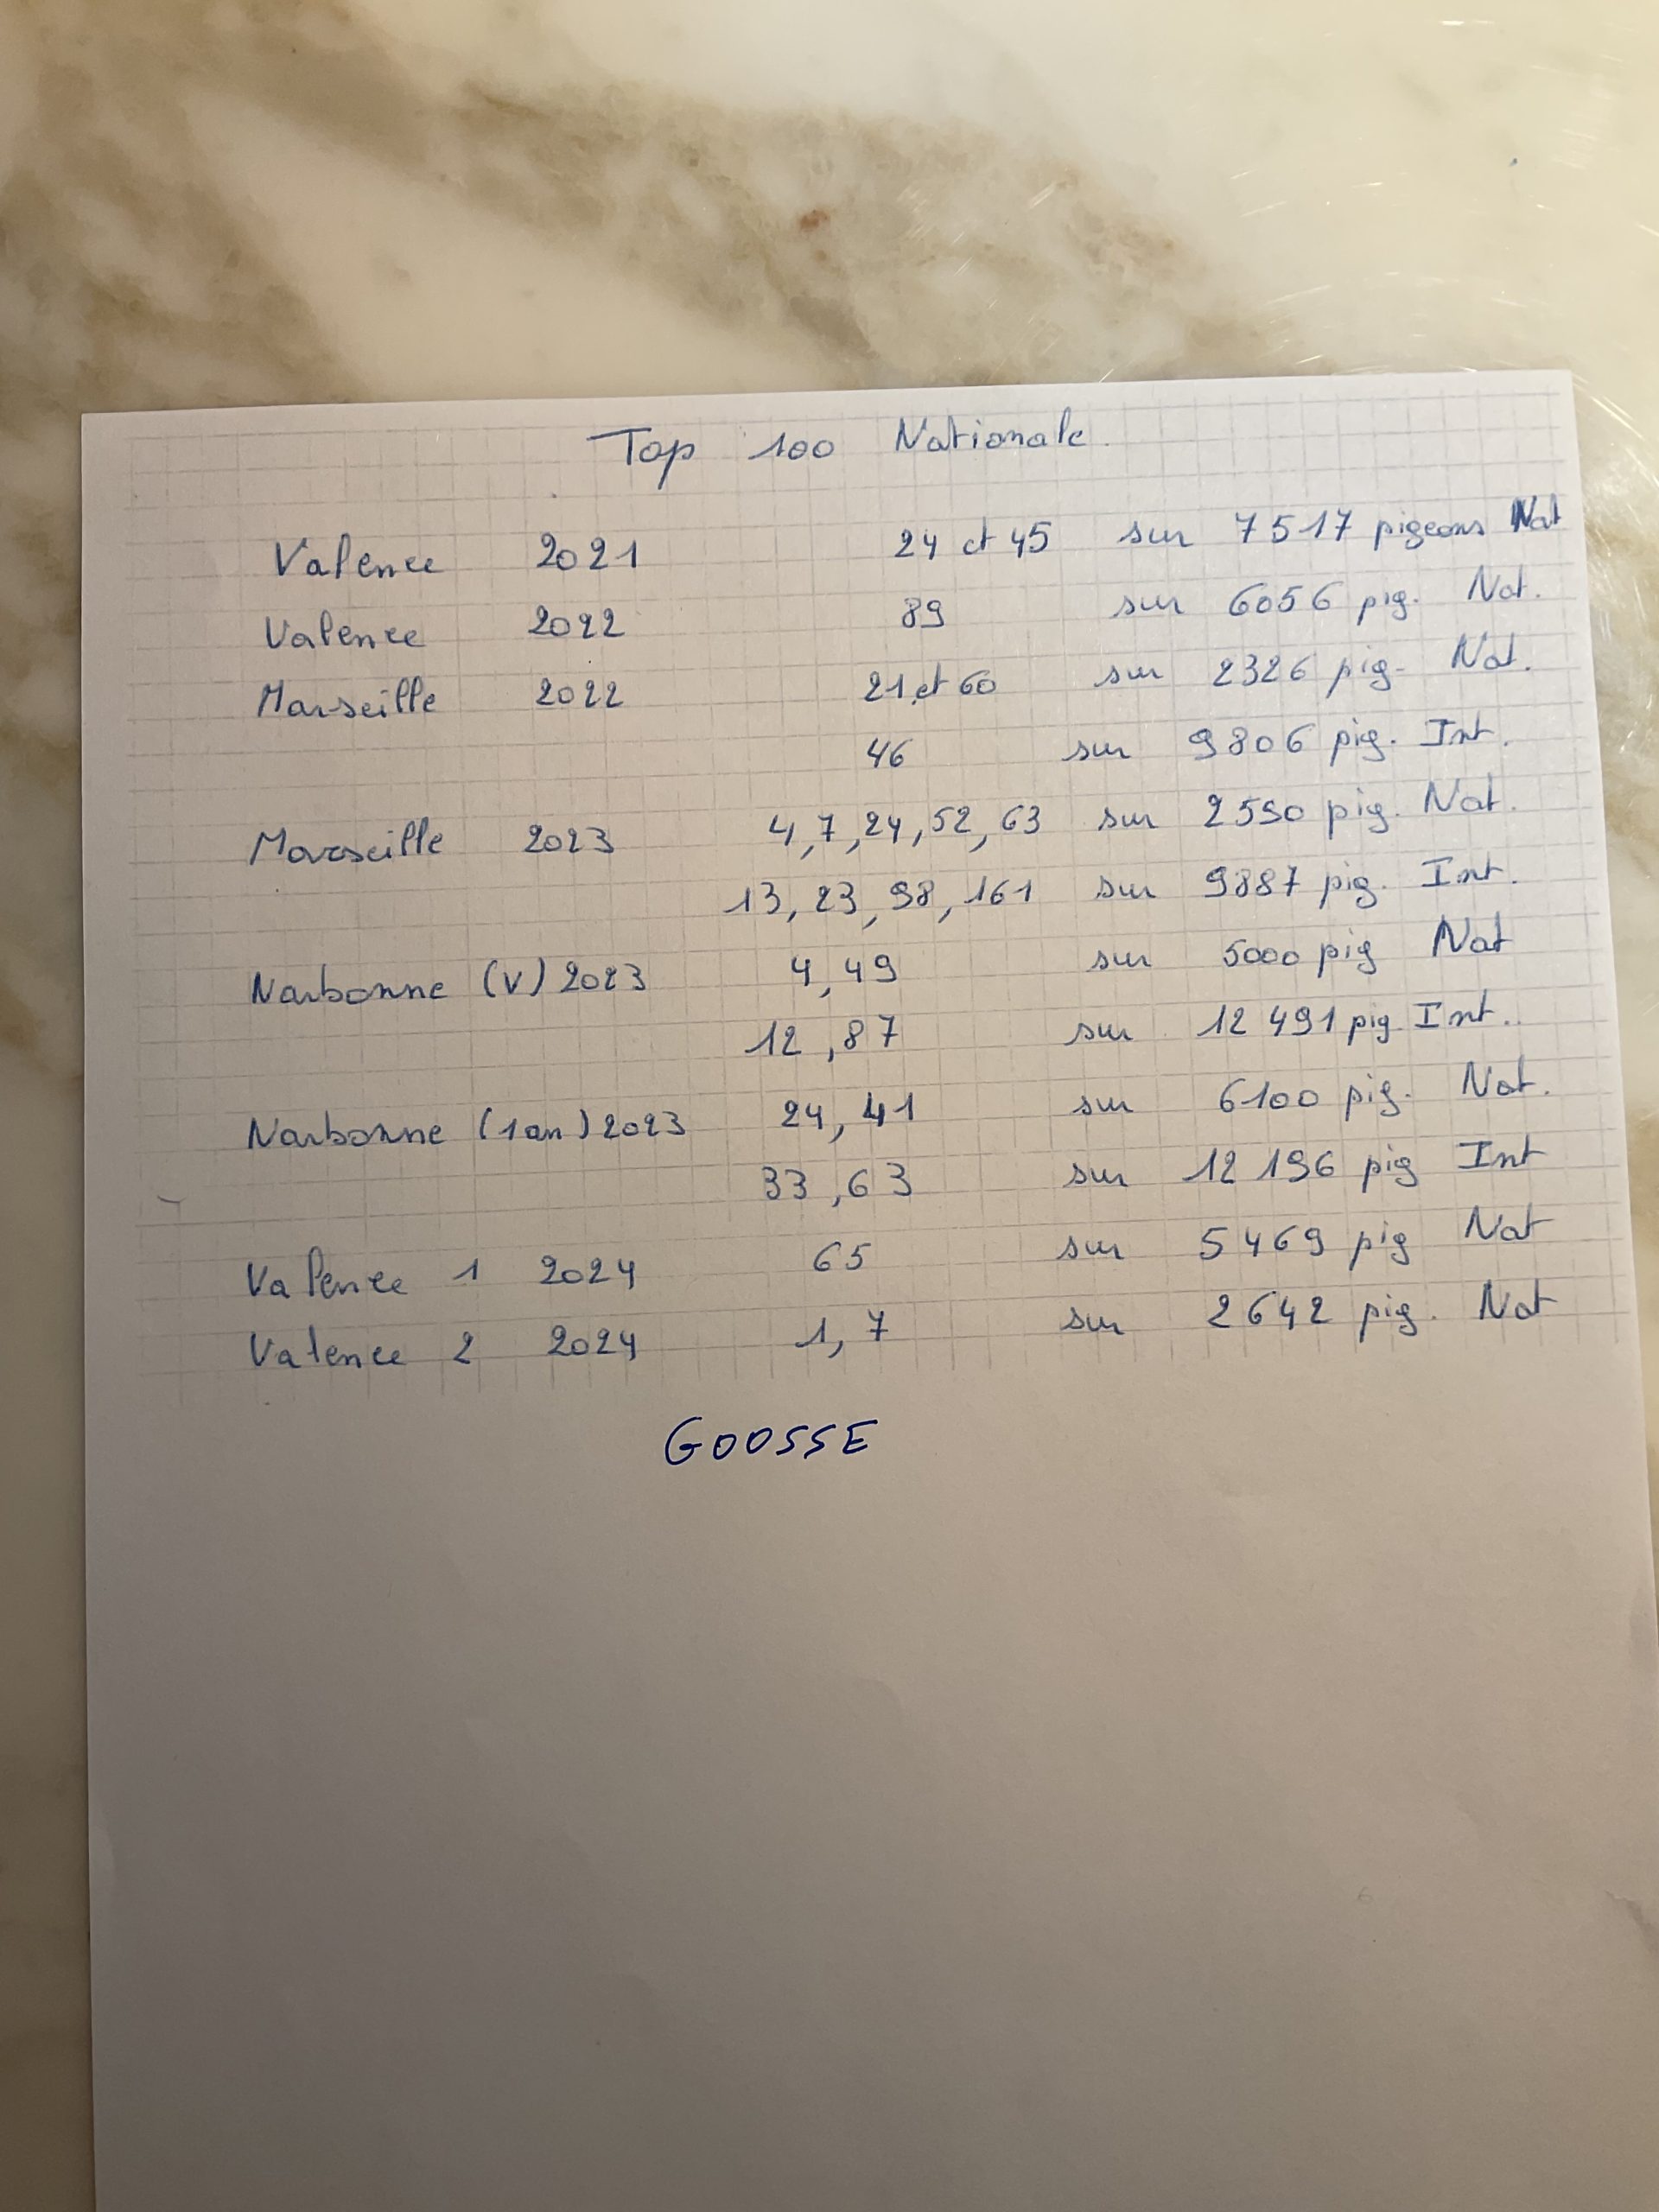 Top 100 Nationale.
Valence 2021 24 et 45 sur 7517 pigeons Nat
Valence 2022 89 sur 6056 pig. Nat.
Marseille 2022 21 et 60 sur 2326 pig. Nat.
46 sur 9806 pig. Int.
Marseille 2023 4, 7, 24, 52, 63 sur 2590 pig. Nat.
13, 23, 98, 161 sur 9887 pig. Int.
Narbonne (V) 2023 4, 49 sur 5000 pig Nat
12, 87 sur 12 491 pig. Int.
Narbonne (1an) 2023 24, 41 sur 6100 pig. Nat.
33, 63 sur 12 196 pig Int
Valence 1 2024 65 sur 5469 pig Nat
Valence 2 2024 1, 7 sur 2642 pig. Nat
GOOSSE